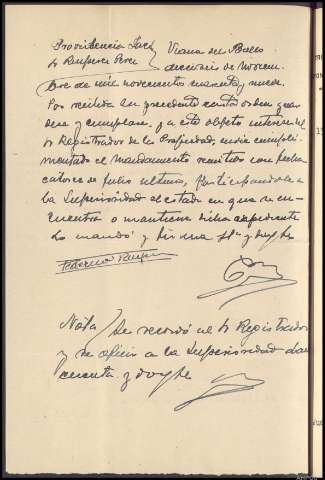 Providencia Juez Viana del Bollo
Sr Rampérez Perez dieciseis de Noviem
bre de mil novecientos cuarenta y nueve.
Por recibida la precedente carta orden guar
dese y cumplase, y a este objeto interese del
Sr Registrador de la Propiedad, envie cumpli
mentado el mandamiento remitido con fecha
catorce de Julio ultimo, participandole a
la Superioridad el estado en que se en
cuentra o mantiene dicho expediente
Lo mandó y firma Sª y doy fe
Nota/ Se recordó al Sr Registrador
y se oficio a la Superioridad dan
cuenta y doy fe